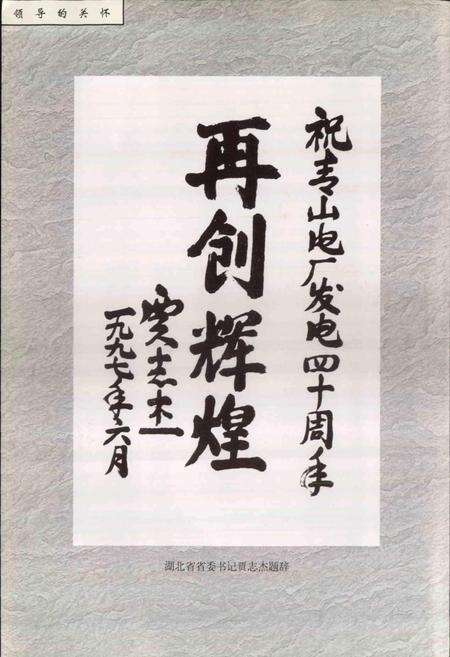 领导的关怀
祝青山电厂发电四十周年
再创辉煌
贾志杰
一九九七年六月
湖北省省委书记贾志杰题辞